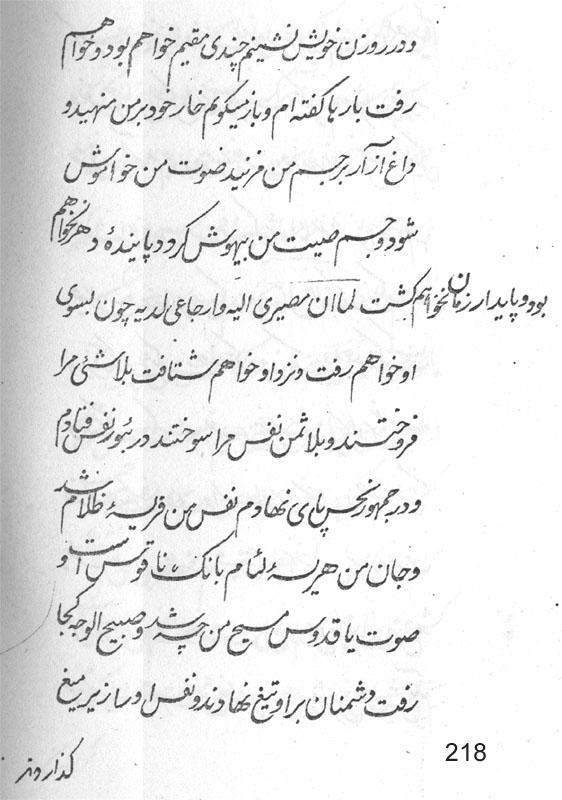 و در روزن خویش نشینم چندی مقیم خواهم بود و خواهم
رفت بارها گفته‌ام و باز میگویم خار خود بر من منهید و
داغ از آر بر جسم من مزنید صوت من خواموش
شود و جسم صیت من بیهوش گردد پاینده دهر نخواهم
بود و پایدار زمان نخواهم گشت لما ان مصیری الیه و ارجاعی لدیه چون بسوی
او خواهم رفت و نزد او خواهم شتافت بلاشئی مرا
فروختند و بلاثمن نفس مرا سوختند در بئور نفس فتادم
و در جمهور نحس پای نهادم نفس من فریسهٔ ظلام شد
و جان من هریسهٔ لئام بانک ناقوس است و
صوت یا قدوس مسیح من چه شد و صبیح الوجه کجا
رفت دشمنان بر او تیغ نهادند و نفس او را زیر میغ
گذاردند
218